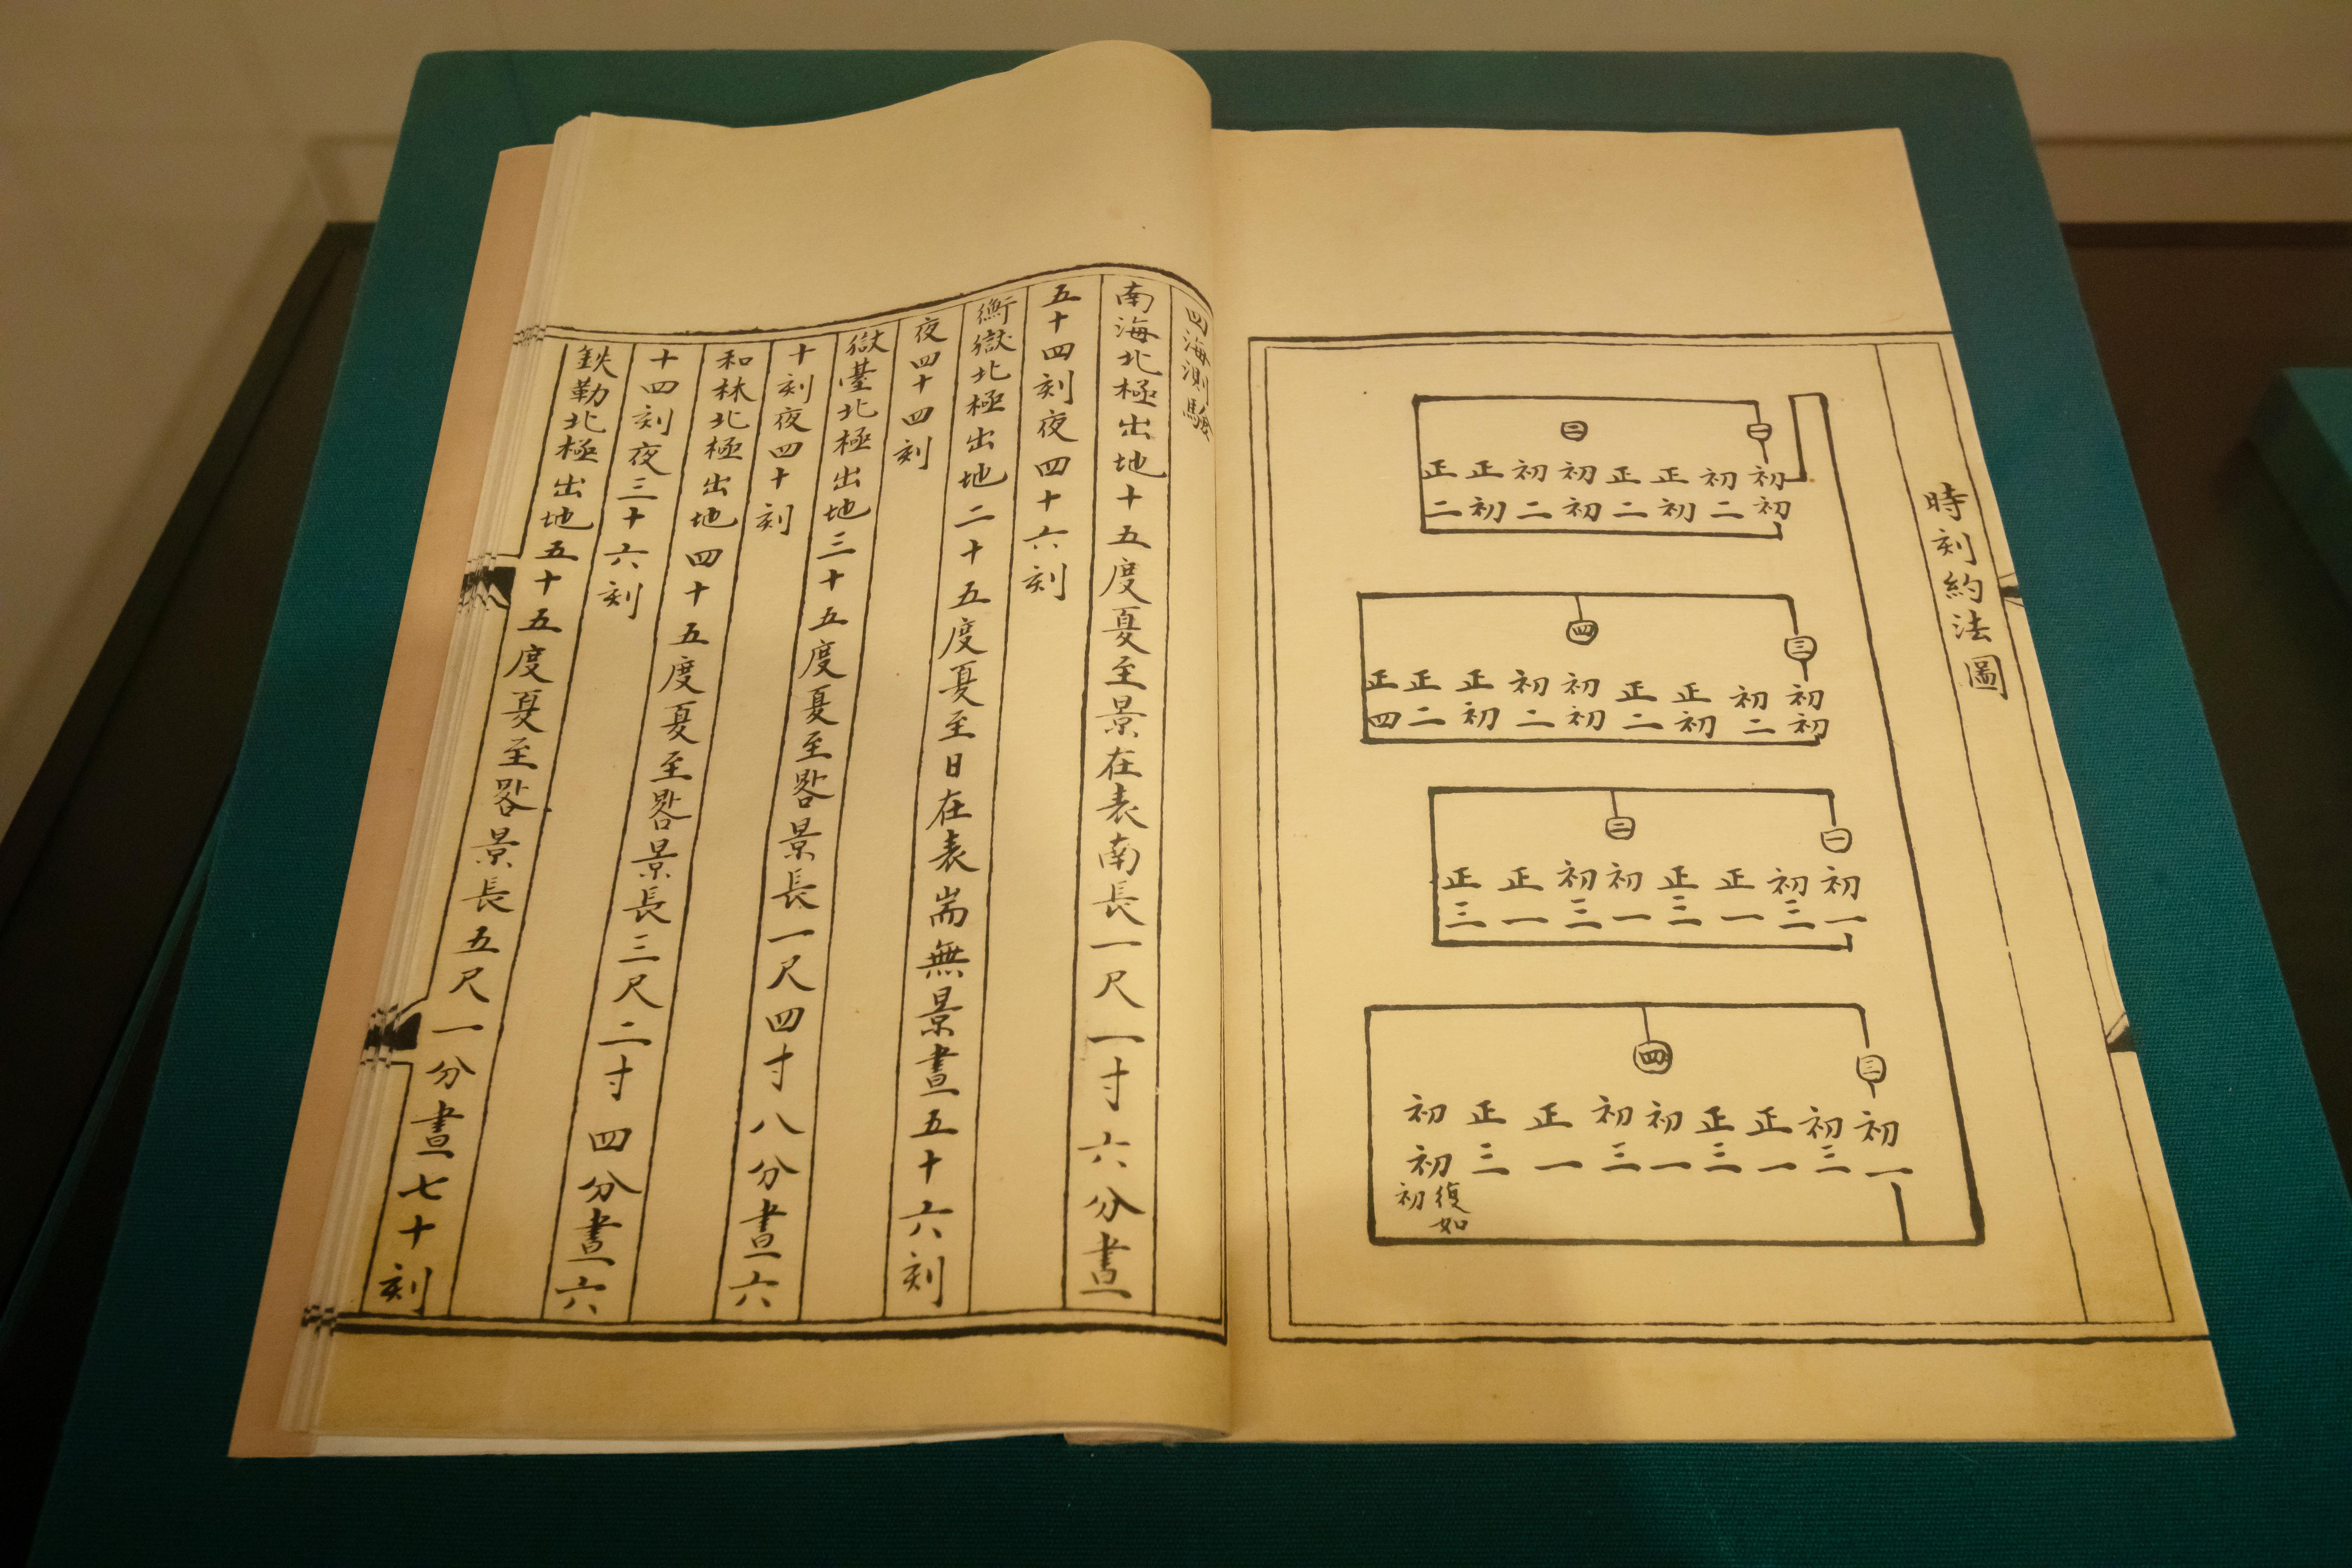 時刻約法圖
一
初初
初二
正初
正二
二
初初
初二
正初
正二
三
初初
初二
正初
正二
四
初初
初二
正初
正二
正四
一
初一
初三
正一
正三
二
初一
初三
正一
正三
三
初一
初三
正一
正三
四
初一
初三
正一
正三
初初
復如
初
四海測驗
南海北極出地十五度夏至景在表南長一尺一寸六分晝
五十四刻夜四十六刻
衡嶽北極出地二十五度夏至日在表耑無景晝五十六刻
夜四十四刻
嶽臺北極出地三十五度夏至晷景長一尺四寸八分晝六
十刻夜四十刻
和林北極出地四十五度夏至晷景長三尺二寸四分晝六
十四刻夜三十六刻
鉄勒北極出地五十五度夏至晷景長五尺一分晝七十刻